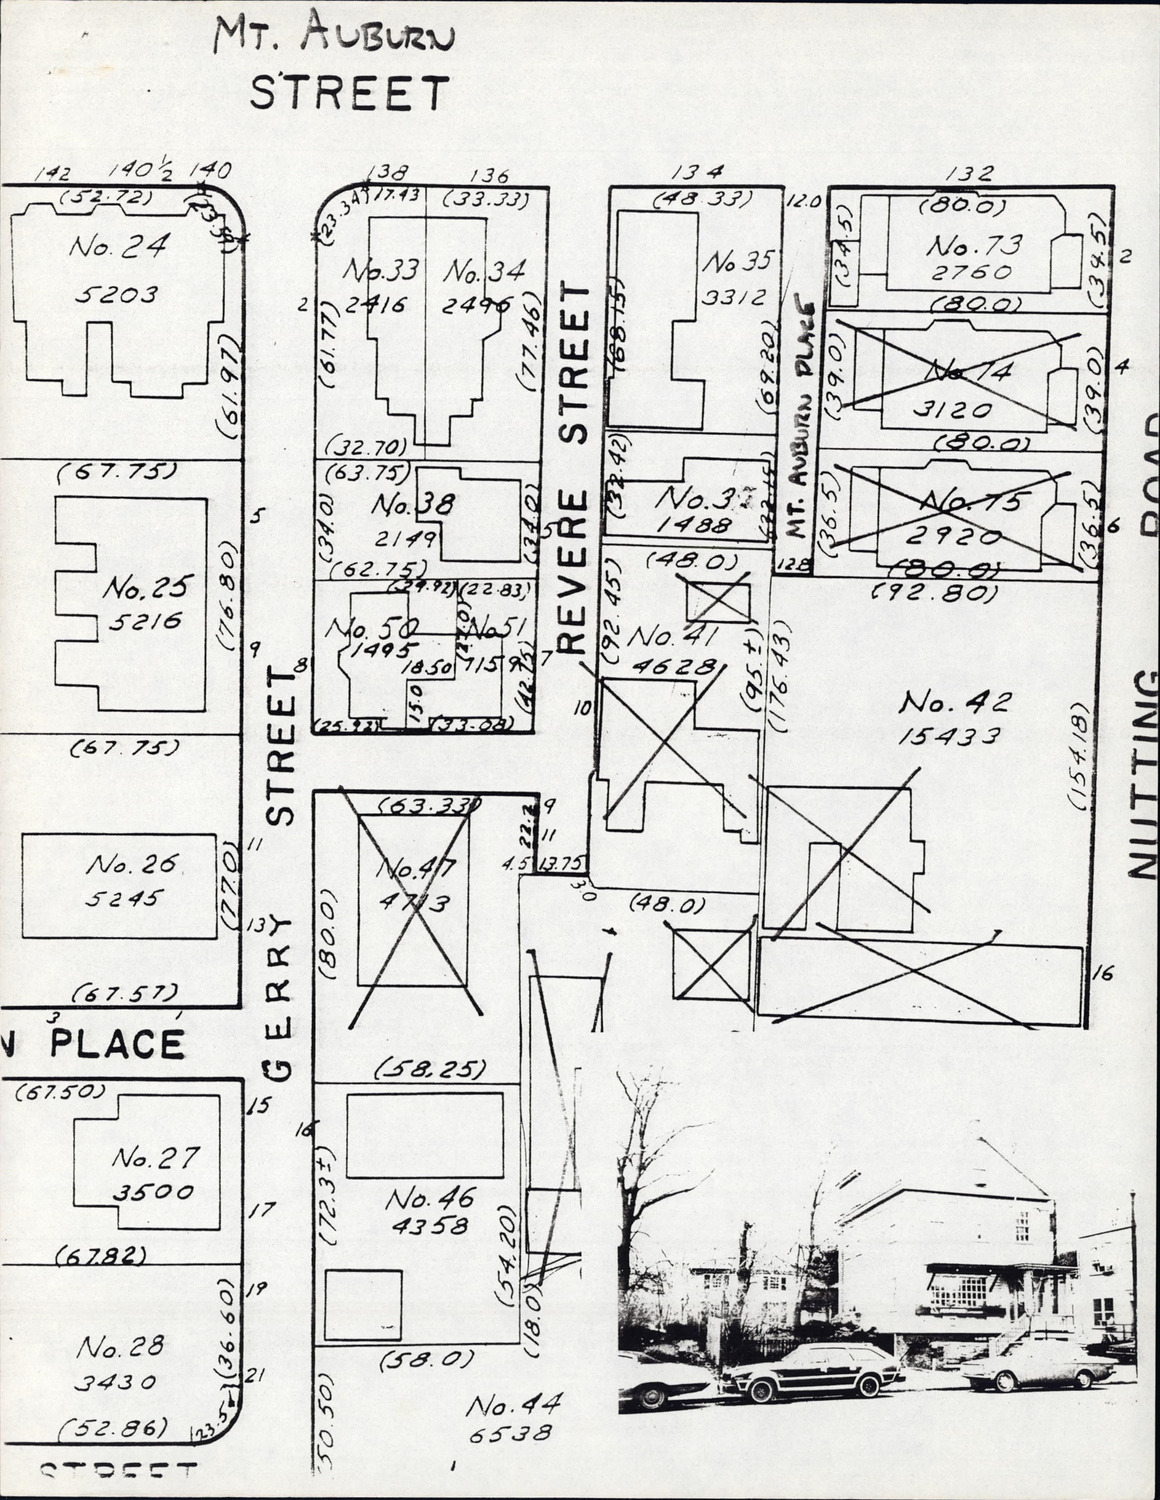 MT. AUBURN
STREET
142 140½ 140
138 136
134
132
(52.72)
(23.34) 17.43 (33.33)
(48.33)
12.0
(80.0)
No. 24
5203
(61.97)
No. 33
2416
No. 34
2496
2
(61.77)
(77.46)
(32.70)
No 35
3312
(68.15)
(69.20)
No. 73
2760
(34.5)
(34.5)
2
(80.0)
No. 74
3120
(39.0)
(39.0)
4
(80.0)
No. 75
2920
(36.5)
(36.5)
6
(80.0)
(92.80)
MT. AUBURN PLACE
12.8
REVERE STREET
(67.75)
No. 25
5216
5
(76.80)
9
(67.75)
(63.75)
No. 38
2149
(34.0)
(34.0)
5
(62.75)
(29.92) (22.83)
No. 50
1495
No. 51
715
18.50
15.0
(42.75)
7
8
(25.92) (33.08)
(32.42)
1488
(48.0)
(92.45)
No. 41
4628
(95.±)
(176.43)
10
No. 42
15433
(154.18)
NUTTING ROAD
GERRY STREET
No. 26
5245
11
(77.0)
13
(67.57)
(63.33)
No. 47
4713
(80.0)
22.2
9
11
4.5 13.75
3.0
(48.0)
16
N PLACE
(67.50)
No. 27
3500
15
17
(67.82)
(58.25)
16
(72.3±)
No. 46
4358
(54.20)
(18.0)
(58.0)
19
(36.60)
No. 28
3430
21
(52.86)
(50.50)
No. 44
6538
STREET